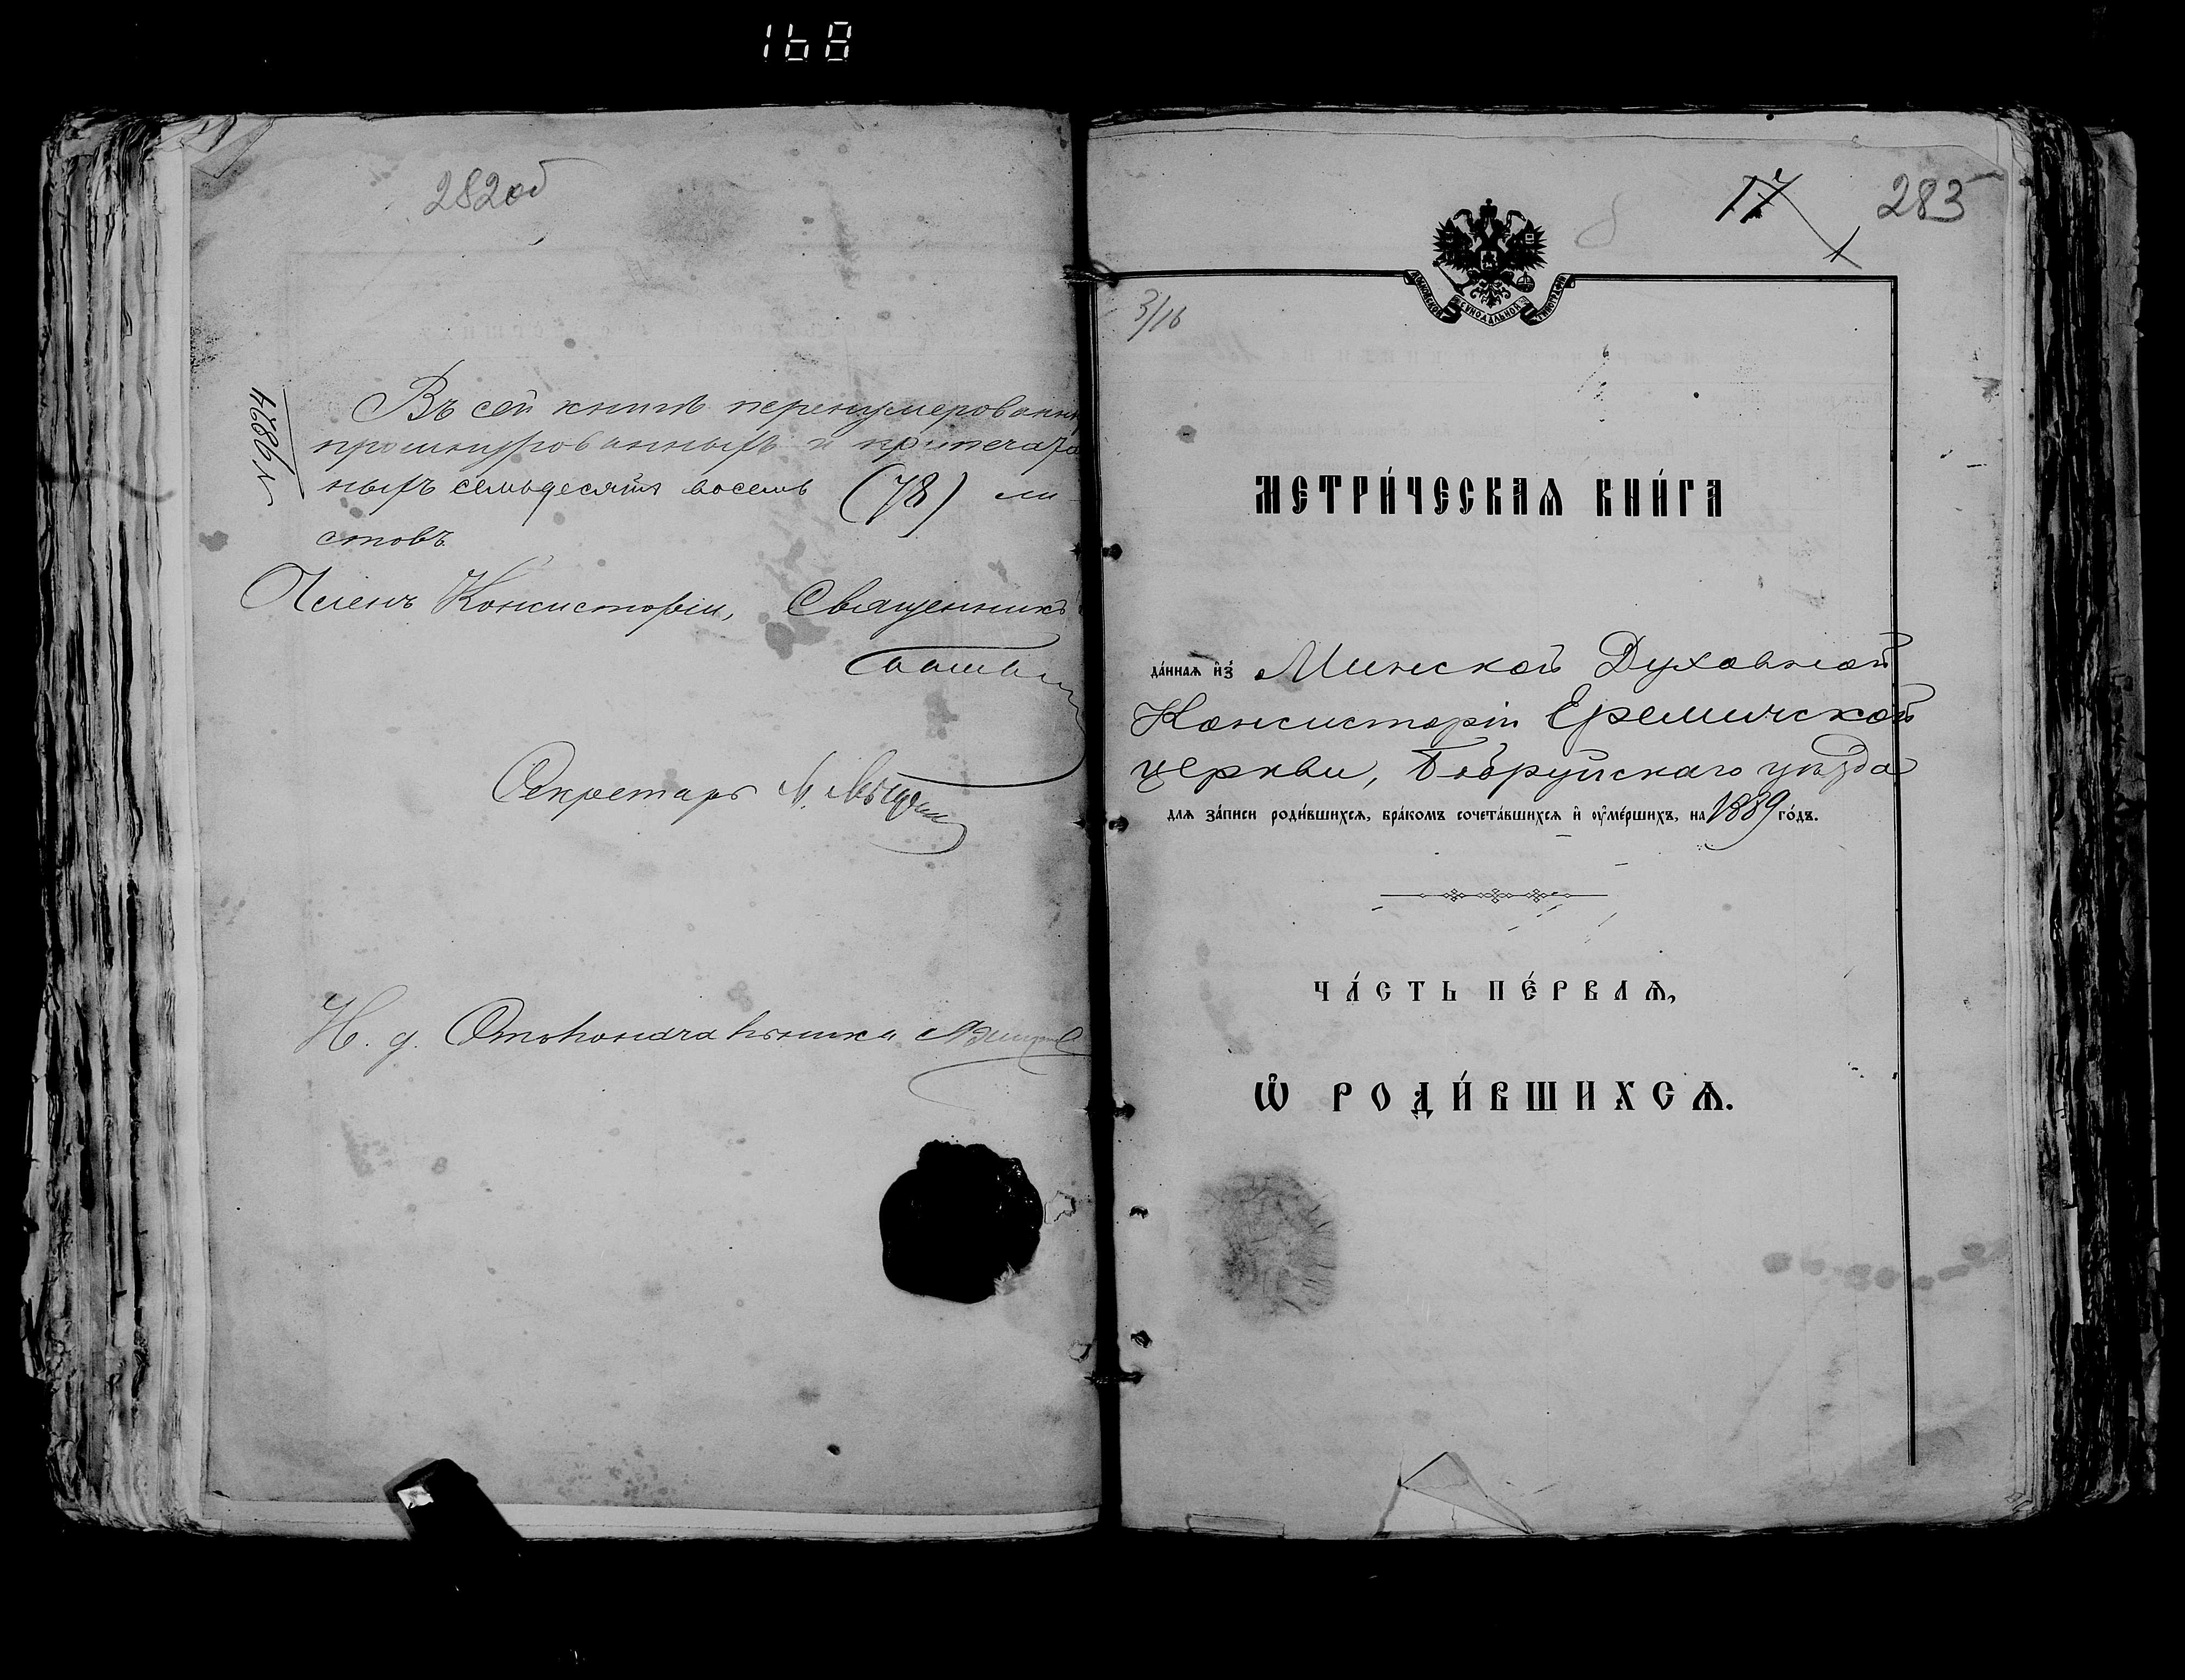 168
282об
№ 9884
Въ сей книгѣ перенумерованны
прошнурованныхъ и припечата
ныхъ семьдесятъ восемь (78) ли-
стовъ
Членъ Консисторіи, Священникъ
Секретарь
И. д. Столоначальника
17
283
3/16
МОСКОВСКОЙ СѴНОДАЛЬНОЙ ТИПОГРАФІИ
МЕТРИ́ЧЕСКАѦ КНИ́ГА
да́ннаѧ и҆з̾ Минской Духовной
Консисторіи Еремичской
церкви, Бобруйскаго уѣзда
для за́писи роди́вшихсѧ, бра́комъ сочета́вшихсѧ и҆ ѹ҆ме́ршихъ, на 1889 го́дъ.
ЧА́СТЬ ПЕ́РВАѦ,
Ѡ҆ РОДИ́ВШИХСѦ.